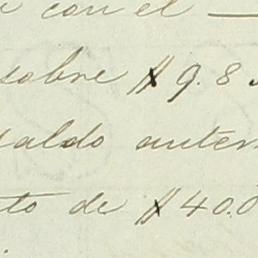 con el
sobre $9.8
saldo anter
to de $40.0